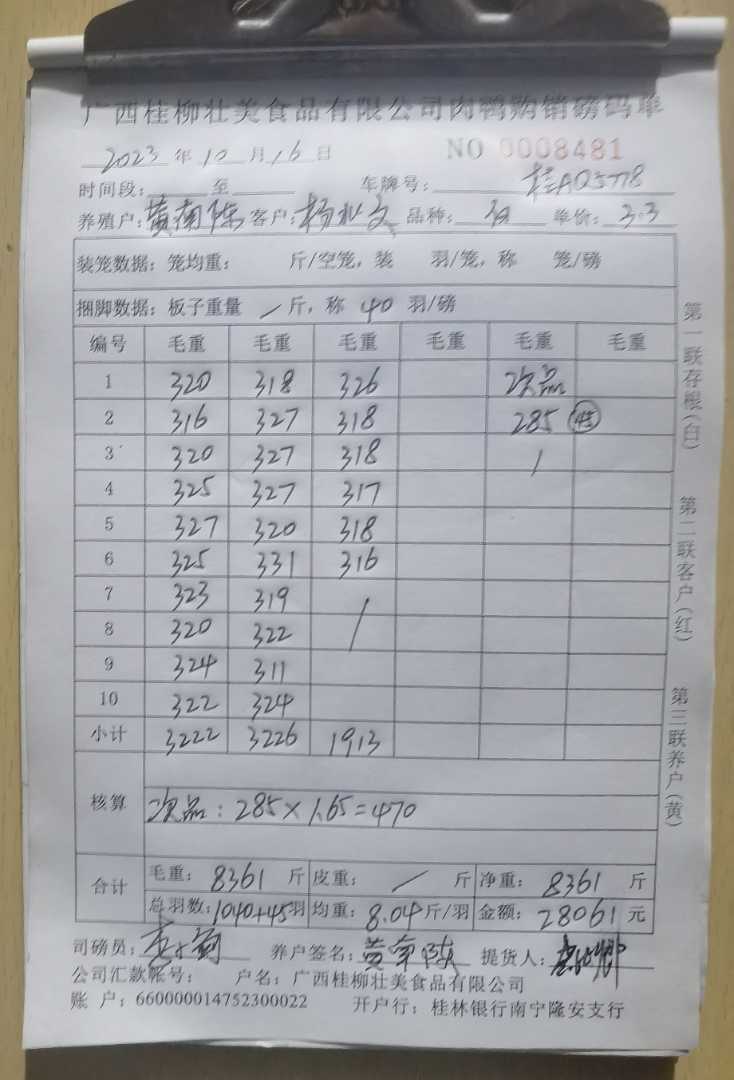 广西桂柳壮美食品有限公司肉鸭购销磅码单
2023 年 10 月 16 日 NO 0008481
时间段: 至 车牌号: 桂AQ5778
养殖户: 黄南陈 客户: 杨 文 品种: 单价: 3.3
装笼数据: 笼均重: 斤/空笼, 装 羽/笼, 称 笼/磅
捆脚数据: 板子重量 / 斤, 称 40 羽/磅
编号 毛重 毛重 毛重 毛重 毛重 毛重
1 320 318 326 次品
2 316 327 318 285 45
3 320 327 318 /
4 325 327 317
5 327 320 318
6 325 331 316
7 323 319 /
8 320 322 /
9 324 311
10 322 324
小计 3222 3226 1913
核算 次品: 285×1.65=470
合计 毛重: 8361 斤 皮重: / 斤 净重: 8361 斤
总羽数: 1040+45 羽 均重: 8.04 斤/羽 金额: 28061 元
司磅员: 养户签名: 黄南陈 提货人:
公司汇款帐号: 户名: 广西桂柳壮美食品有限公司
账 户: 660000014752300022 开户行: 桂林银行南宁隆安支行
第一联存根(白)
第二联客户(红)
第三联养户(黄)